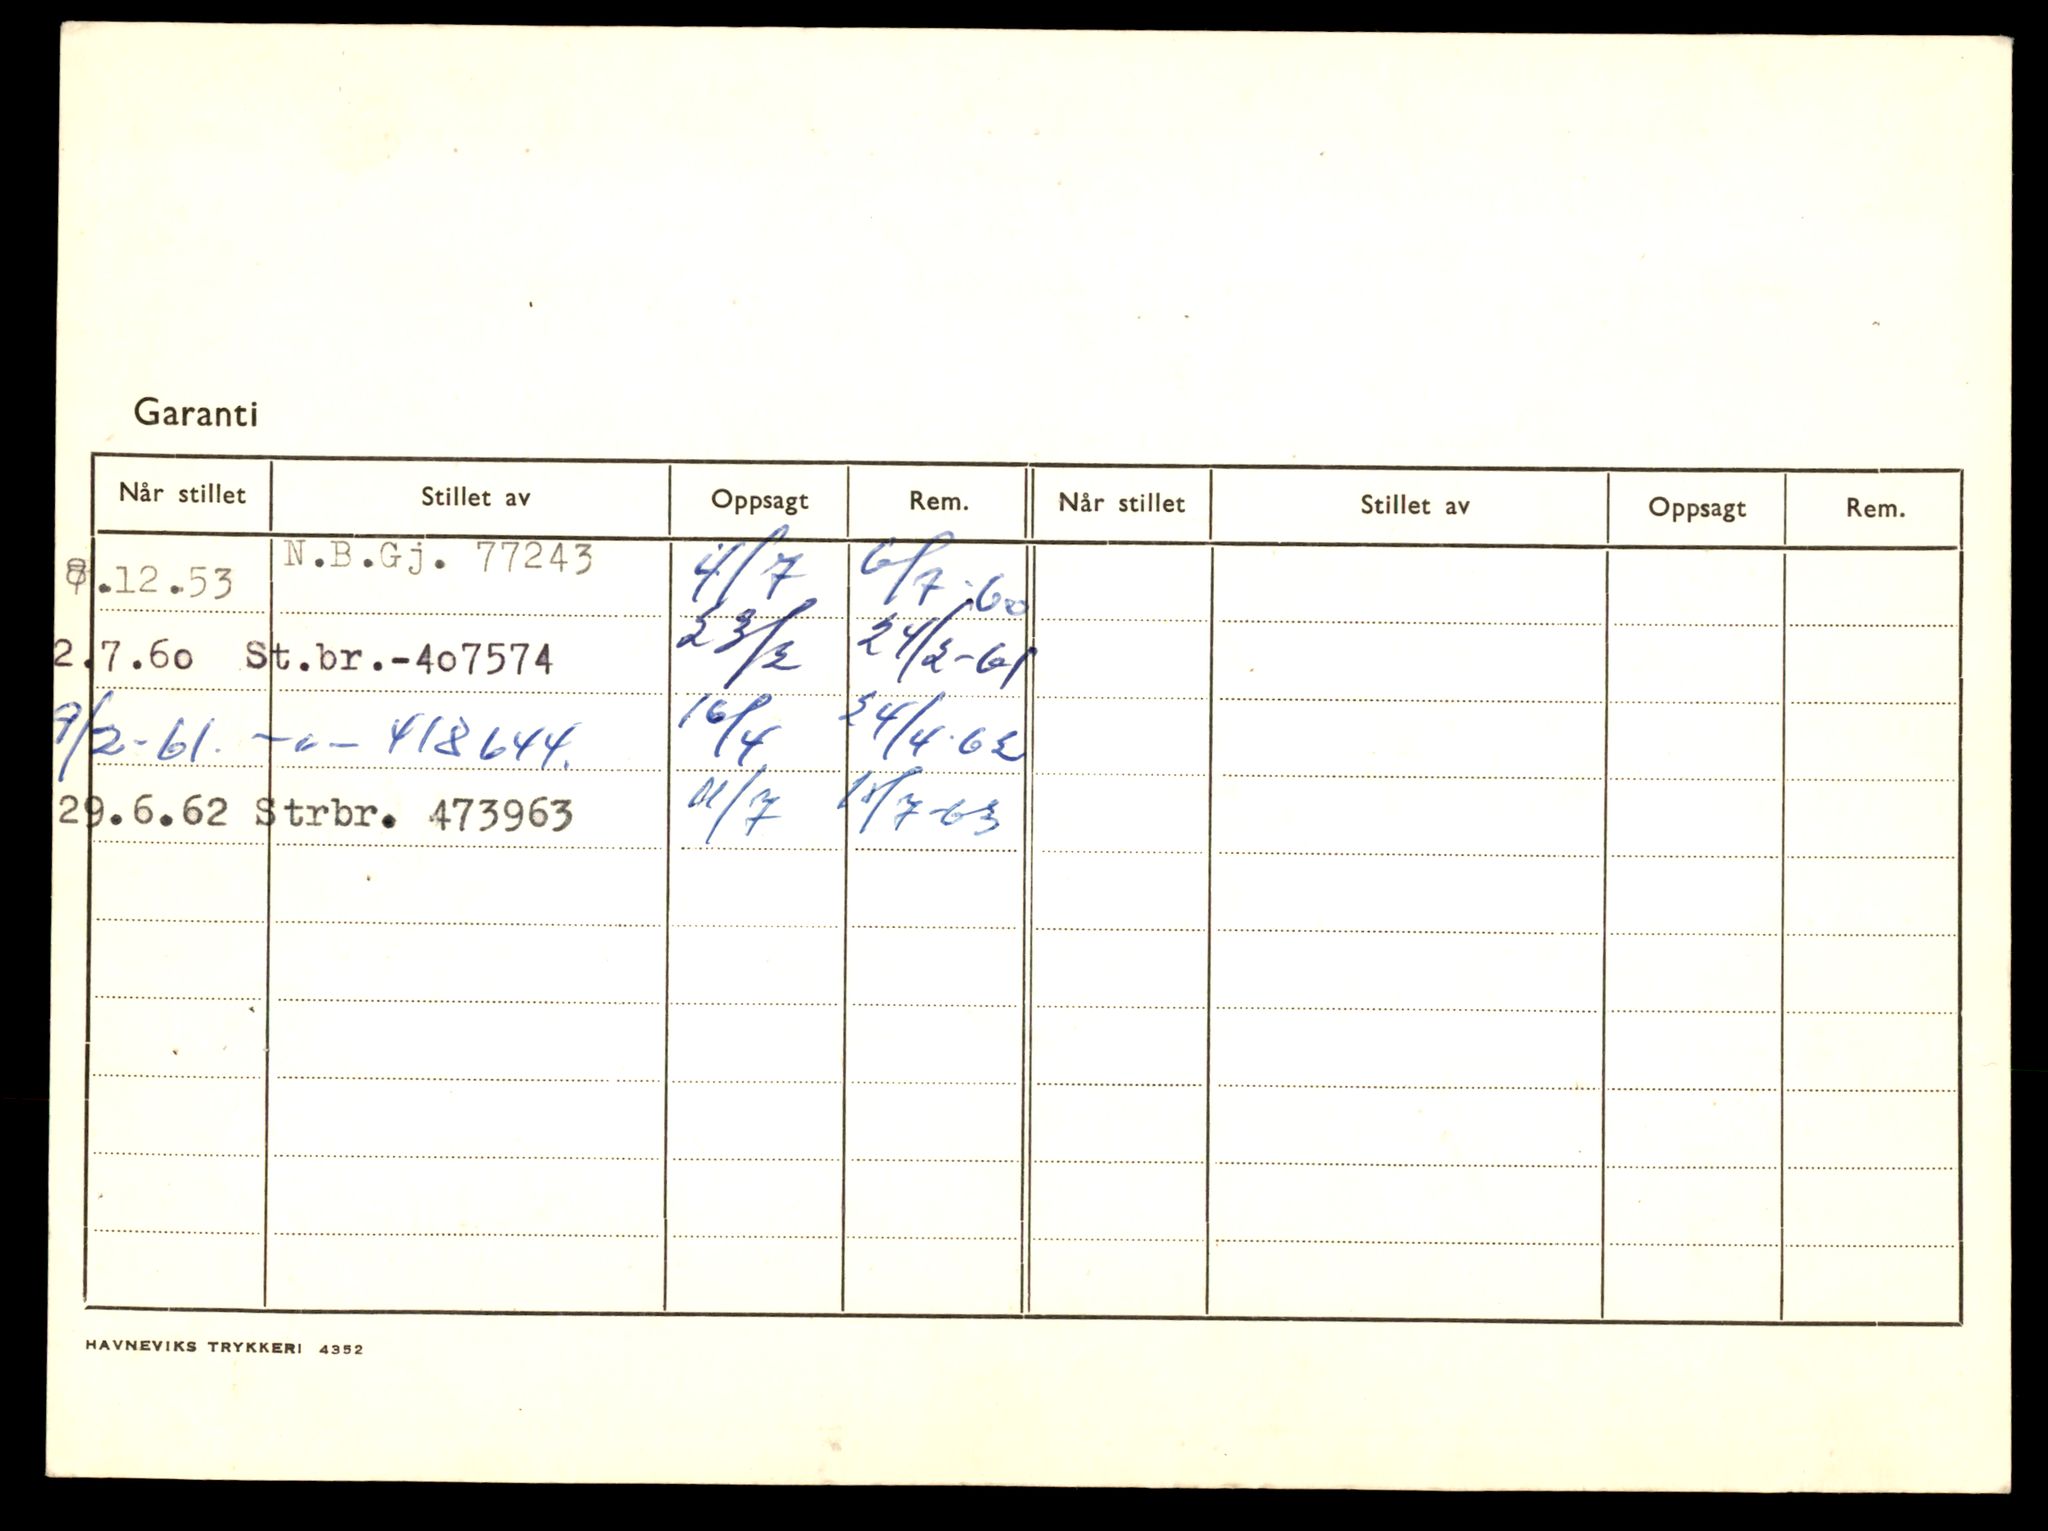 Garanti
Når stillet Stillet av Oppsagt Rem. Når stillet Stillet av Oppsagt Rem.
8.12.53 N.B.Gj. 77243 4/7 6/7-60
2.7.60 St.br.-407574 23/2 24/2-61
9/2-61. -"- 418644. 16/4 24/4-62
29.6.62 Strbr. 473963 /7 /7-63
HAVNEVIKS TRYKKERI 4352